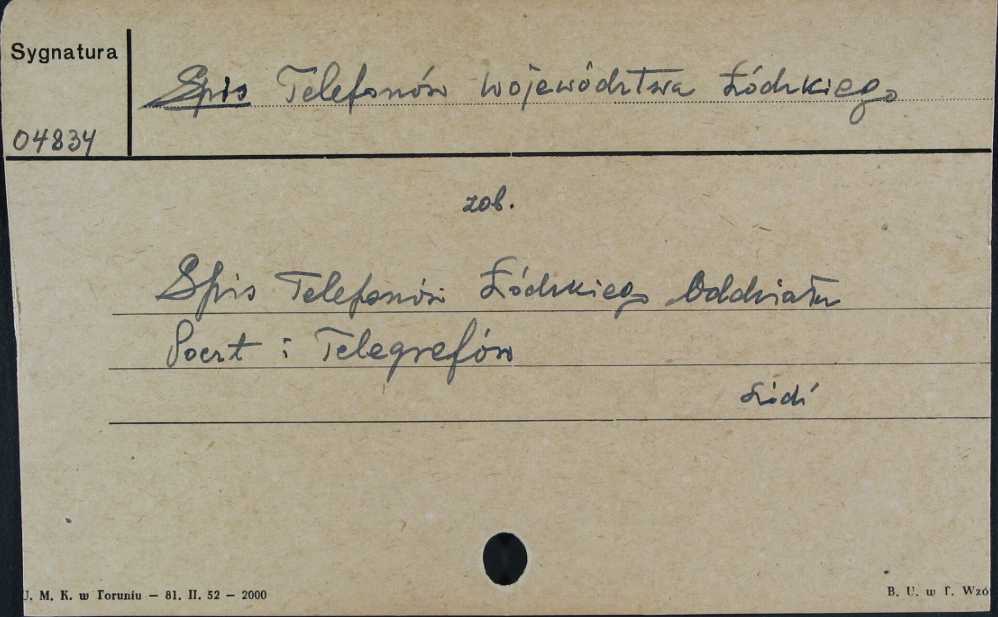 Sygnatura
Spis Telefonów Województwa Łódzkiego
04834
zob.
Spis Telefonów Łódzkiego Oddziału
Poczt i Telegrafów
Łódź
U. M. K. w Toruniu — 81. II. 52 — 2000
B. U. w T. Wzó